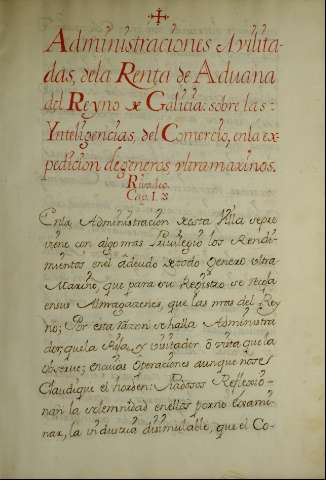 Administraciones Avilita-
das, dela Renta de Aduana
del Reyno de Galicia: sobre las
Ynteligencias, del Comercio, enla ex-
pedicion degeneros ultramarinos.
Rivadeo.
Cap. I.
Enla Administracion deesta Villa sepre
viene con algo mas Privilegio los Rendi-
mientos enel adeudo detodo Genero ultra
Marino, que para su Registro se recoja
ensus Almagazenes, que las mas del Rey
no; Por esta razon sehalla Administra
dor, quela Rija, y visitador ò vista que la
observe; encuias Operaciones aunque nose
Claudique el horden: Piadosas Reflesio-
nan la solemnidad enellas porno Exsami-
nar, la industria disimulable, que el Co-